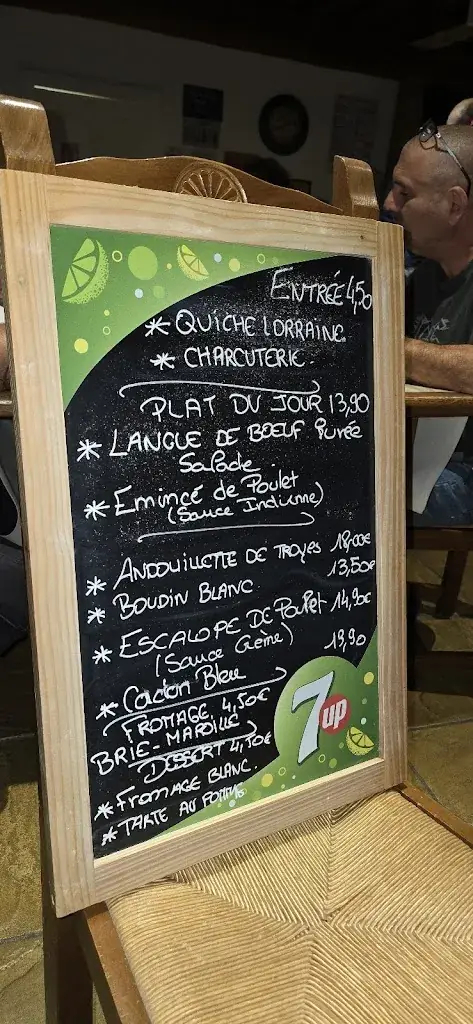 ENTRÉE 4,50
* QUICHE LORRAINE.
* CHARCUTERIE.
PLAT DU JOUR 13,90
* LANGUE DE BOEUF Purée
Salade.
* Emincé de Poulet
(Sauce Indienne)
* ANDOUILLETTE DE TROYES 18,00€
* BOUDIN BLANC 13,50€
* ESCALOPE DE Poulet 14,90€
(Sauce Crème)
* Cordon Bleu 19,90
FROMAGE 4,50€
BRIE-MAROILLE
DESSERT 4,50€
* FROMAGE BLANC.
* TARTE AU POMMES
7up